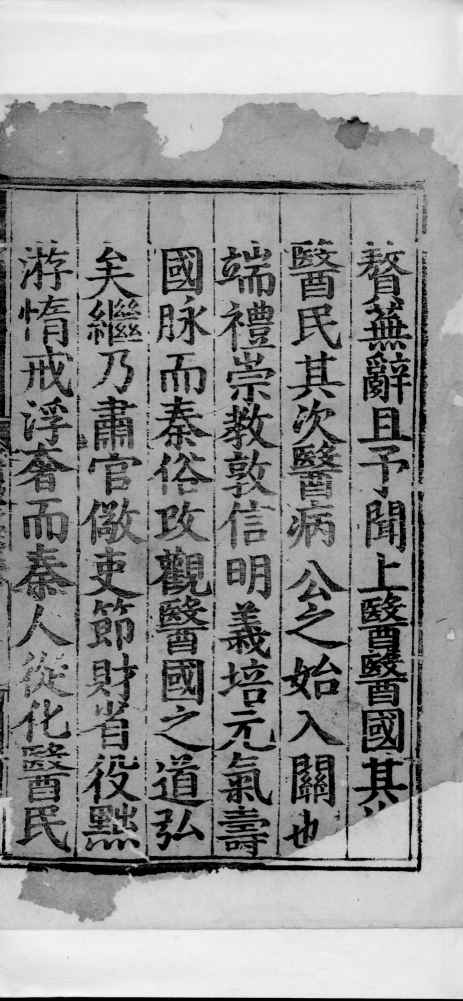 贅蕪辭且予聞上醫醫國其
醫民其次醫病公之始入關也
端禮崇教敦信明義培元氣壽
國脉而秦俗攻觀醫國之道弘
矣繼乃肅官儆吏節財省役黜
游惰戒浮奢而秦人從化醫民